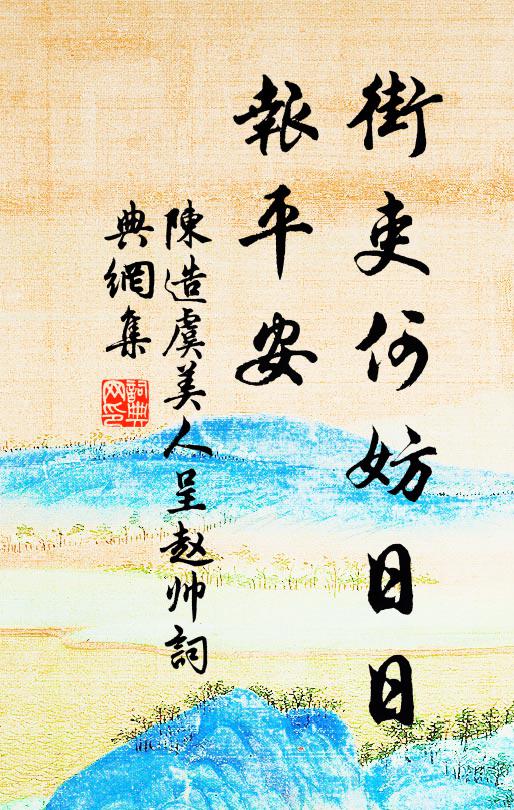 街吏何妨日日
報平安
陳造虞美人呈赵帅詞
典網集
詞典
网印